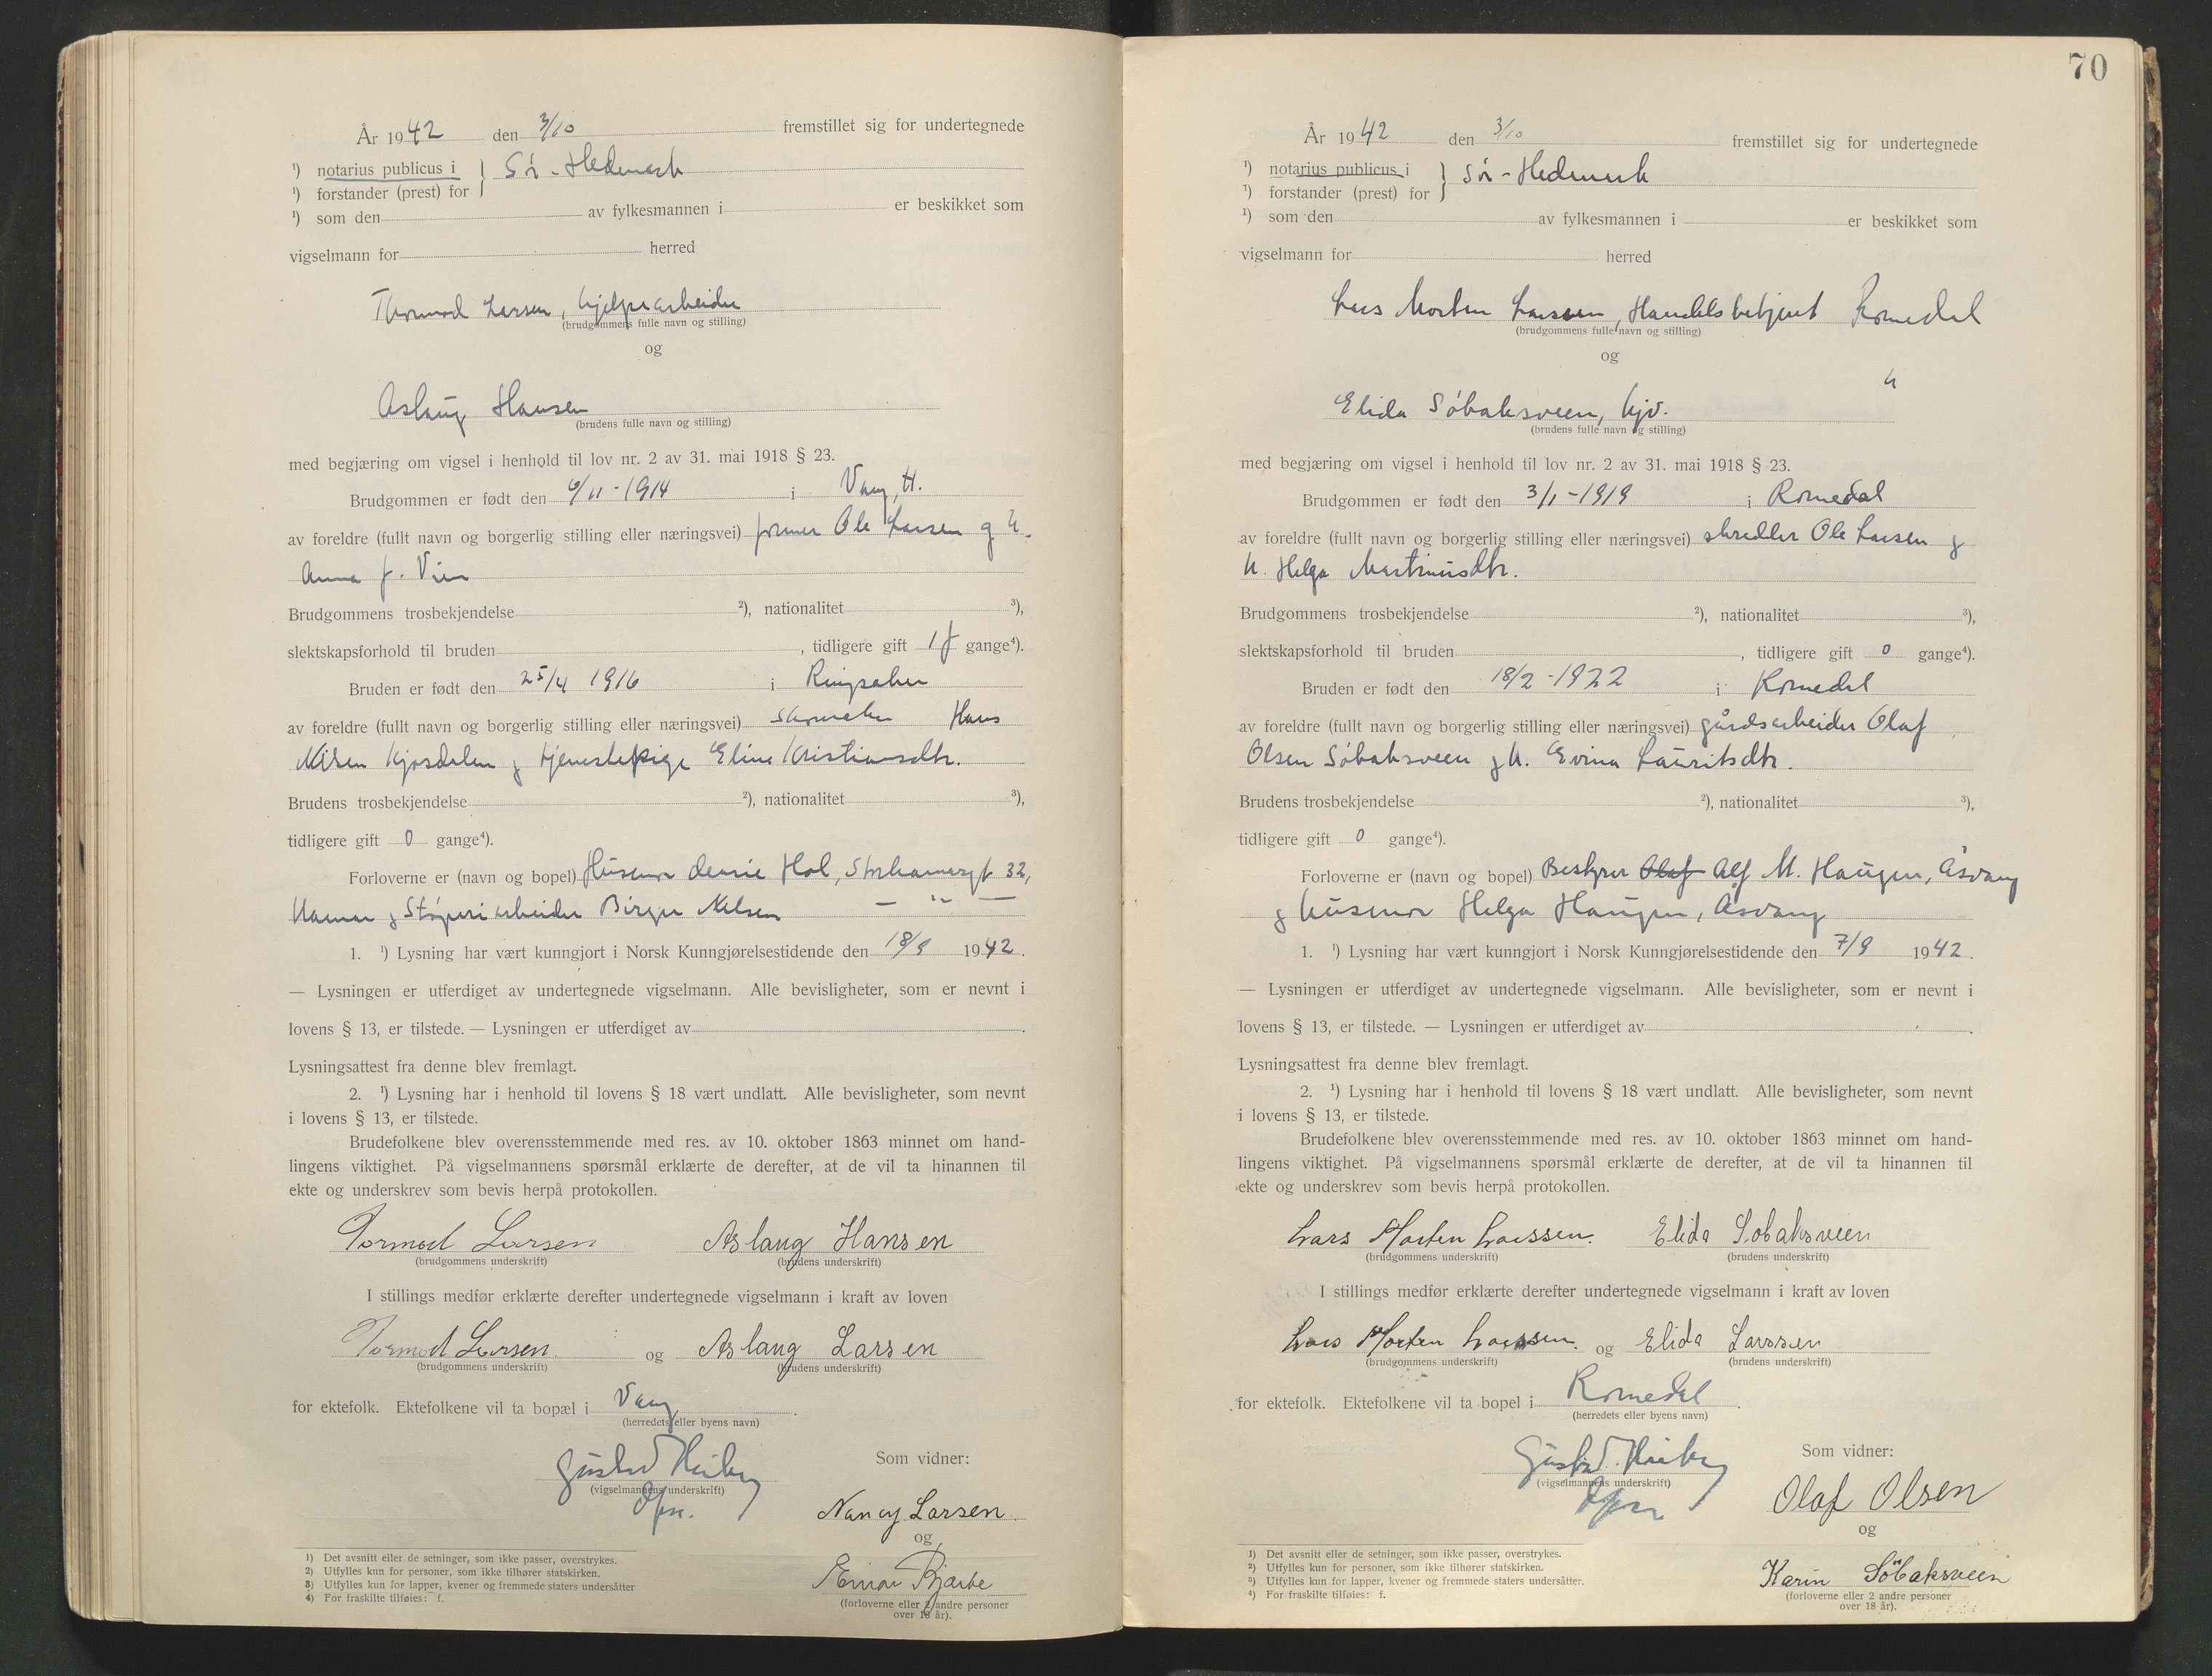 År 1942 den 3/10 fremstillet sig for undertegnede
¹) notarius publicus i } Sør-Hedmark
¹) forstander (prest) for
¹) som den av fylkesmannen i er beskikket som
vigselmann for herred
Thormod Larsen, hjelpearbeider
(brudgommens fulle navn og stilling)
og
Aslaug Hansen
(brudens fulle navn og stilling)
med begjæring om vigsel i henhold til lov nr. 2 av 31. mai 1918 § 23.
Brudgommen er født den 6/11-1914 i Vang, H.
av foreldre (fullt navn og borgerlig stilling eller næringsvei) former Ole Larsen og h.
Anna f. Vien
Brudgommens trosbekjendelse ²), nationalitet ³),
slektskapsforhold til bruden , tidligere gift 1 f gange⁴).
Bruden er født den 25/4 1916 i Ringsaker
av foreldre (fullt navn og borgerlig stilling eller næringsvei) skomaker Hans
Nilsen Kjosdalen og tjenestepige Eline Kristiansdtr.
Brudens trosbekjendelse ²), nationalitet ³),
tidligere gift 0 gange⁴).
Forloverne er (navn og bopel) Husmor Hol, Storhamargt 32,
Hamar og Støperiarbeider Birger Nilsen — " —
1. ¹) Lysning har vært kunngjort i Norsk Kunngjørelsestidende den 18/9 1942.
— Lysningen er utferdiget av undertegnede vigselmann. Alle bevisligheter, som er nevnt i
lovens § 13, er tilstede. — Lysningen er utferdiget av .
Lysningsattest fra denne blev fremlagt.
2. ¹) Lysning har i henhold til lovens § 18 vært undlatt. Alle bevisligheter, som nevnt
i lovens § 13, er tilstede.
Brudefolkene blev overensstemmende med res. av 10. oktober 1863 minnet om hand-
lingens viktighet. På vigselmannens spørsmål erklærte de derefter, at de vil ta hinannen til
ekte og underskrev som bevis herpå protokollen.
Tormod Larsen Aslaug Hansen
(brudgommens underskrift) (brudens underskrift)
I stillings medfør erklærte derefter undertegnede vigselmann i kraft av loven
Tormod Larsen og Aslaug Larsen
(brudgommens underskrift) (brudens underskrift)
for ektefolk. Ektefolkene vil ta bopæl i Vang .
(herredets eller byens navn)
Gustav Heiberg Som vidner:
(vigselmannens underskrift)
Nancy Larsen
og
Einar Bjærke
(forloverne eller 2 andre personer
over 18 år).
1) Det avsnitt eller de setninger, som ikke passer, overstrykes.
2) Utfylles kun for personer, som ikke tilhører statskirken.
3) Utfylles kun for lapper, kvener og fremmede staters undersåtter
4) For fraskilte tilføies: f.
70
År 1942 den 3/10 fremstillet sig for undertegnede
¹) notarius publicus i } Sør-Hedmark
¹) forstander (prest) for
¹) som den av fylkesmannen i er beskikket som
vigselmann for herred
Lars Morten Larssen, Handelsbetjent Romedal
(brudgommens fulle navn og stilling)
og
"
Elida Søbaksveen, hjv.
(brudens fulle navn og stilling)
med begjæring om vigsel i henhold til lov nr. 2 av 31. mai 1918 § 23.
Brudgommen er født den 3/1-1919 i Romedal
av foreldre (fullt navn og borgerlig stilling eller næringsvei) skredder Ole Larsen og
h. Helga Martinusdtr.
Brudgommens trosbekjendelse ²), nationalitet ³),
slektskapsforhold til bruden , tidligere gift 0 gange⁴).
Bruden er født den 18/2-1922 i Romedal
av foreldre (fullt navn og borgerlig stilling eller næringsvei) gårdsarbeider Olaf
Olsen Søbaksveen og h. Evina Lauritsdtr.
Brudens trosbekjendelse ²), nationalitet ³),
tidligere gift 0 gange⁴).
Forloverne er (navn og bopel) Bestyrer Olaf Alf M. Haugen, Åsvang
og husmor Helga Haugen, Åsvang
1. ¹) Lysning har vært kunngjort i Norsk Kunngjørelsestidende den 7/9 1942.
— Lysningen er utferdiget av undertegnede vigselmann. Alle bevisligheter, som er nevnt i
lovens § 13, er tilstede. — Lysningen er utferdiget av .
Lysningsattest fra denne blev fremlagt.
2. ¹) Lysning har i henhold til lovens § 18 vært undlatt. Alle bevisligheter, som nevnt
i lovens § 13, er tilstede.
Brudefolkene blev overensstemmende med res. av 10. oktober 1863 minnet om hand-
lingens viktighet. På vigselmannens spørsmål erklærte de derefter, at de vil ta hinannen til
ekte og underskrev som bevis herpå protokollen.
Lars Morten Larssen. Elida Søbaksveen
(brudgommens underskrift) (brudens underskrift)
I stillings medfør erklærte derefter undertegnede vigselmann i kraft av loven
Lars Morten Larssen. og Elida Larssen
(brudgommens underskrift) (brudens underskrift)
for ektefolk. Ektefolkene vil ta bopel i Romedal .
(herredets eller byens navn)
Gustav Heiberg Som vidner:
(vigselmannens underskrift)
Olaf Olsen
og
Karin Söbaksveen
(forloverne eller 2 andre personer
over 18 år).
¹) Det avsnitt eller de setninger, som ikke passer, overstrykes.
²) Utfylles kun for personer, som ikke tilhører statskirken.
³) Utfylles kun for lapper, kvener og fremmede staters undersåtter.
⁴) For fraskilte tilføies: f.